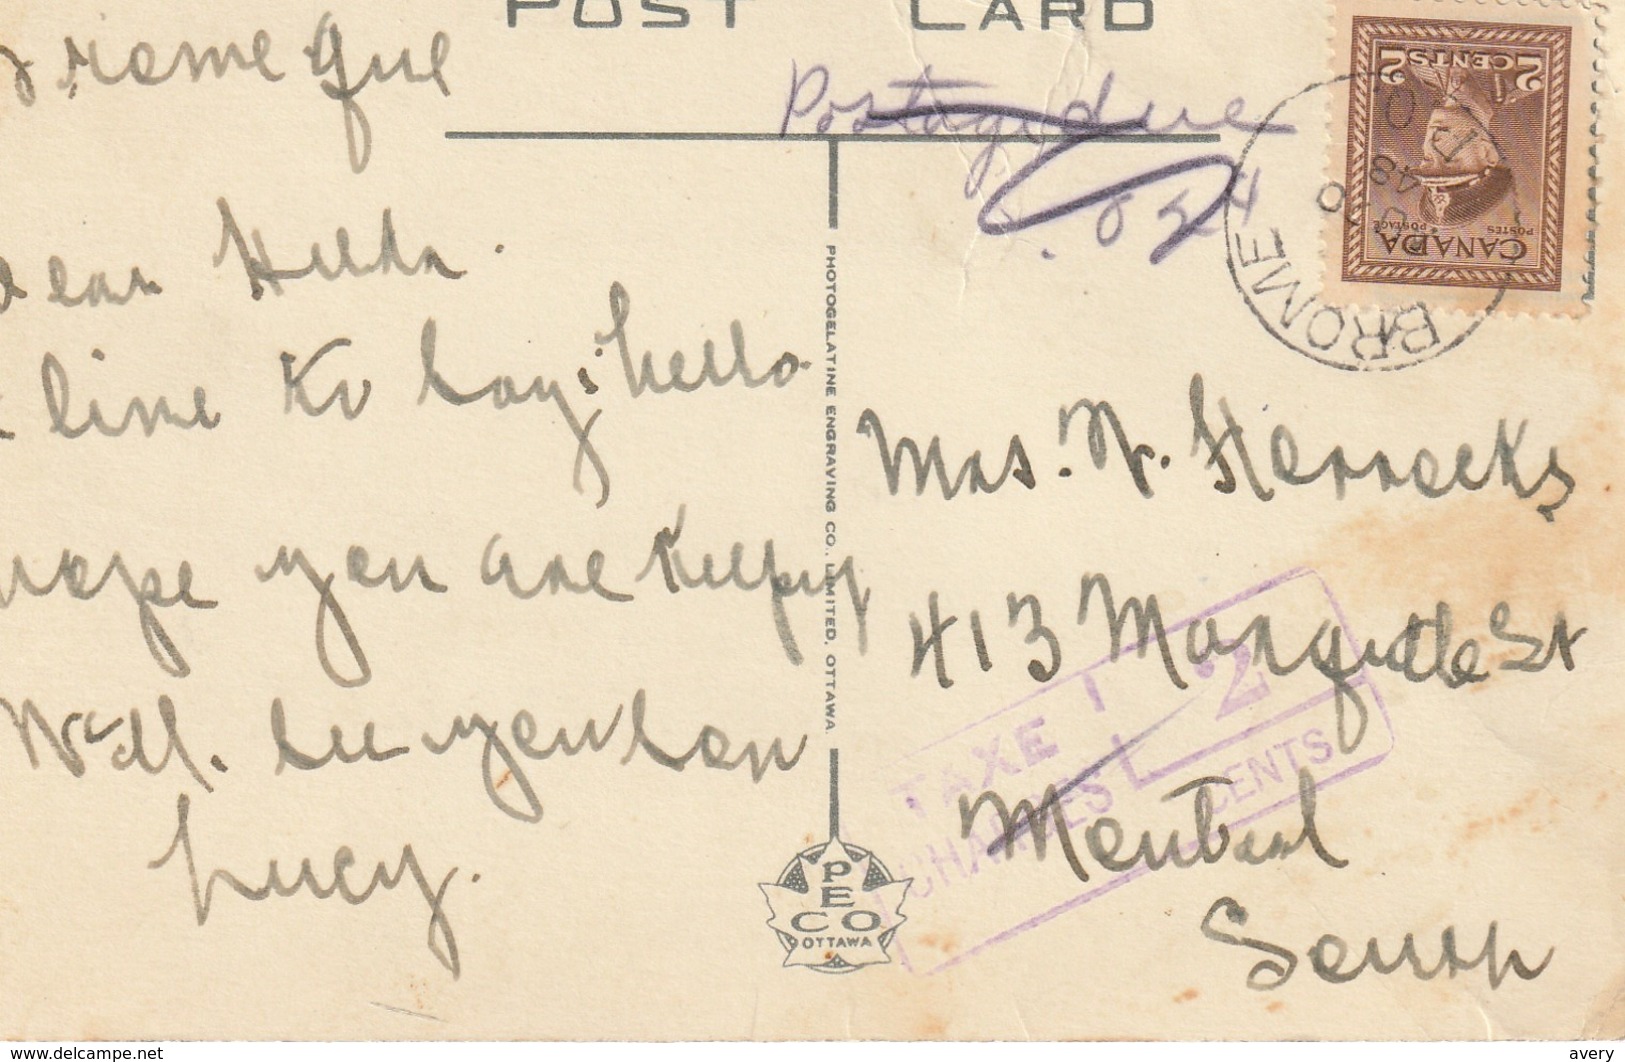 POST CARD
Brome Que
Postage due
.02¢
Dear Hilda.
a line to say hello
hope you are keeping
Well. See you soon
Lucy.
PHOTOGELATINE ENGRAVING CO. LIMITED, OTTAWA.
PECO
OTTAWA
2 CENTS 2
CANADA
POSTES POSTAGE
BROME
48
Mrs. N. Horrocks
413 Marguette St
Montreal
South
TAXE
2
CHARGES
CENTS
www.delcampe.net
avery